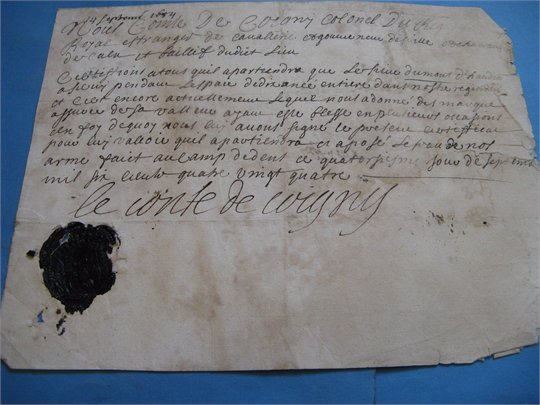 14 septembre 1684
Nous Comte De Cogny Colonel Du
Royal estranger de cavalerie et gouverneur des ville et chateau
de Caen et Baillif dudict Lieu
Certiffions a tous quil apartiendra que Le sieur dumont
a servi pendant Lespace dedix année entiere dans nostre regiment
et Sert encore actuellement Lequel nous adonné des marque
assuree de sa valleur ayant esté blessé en plusieurs ocasions
en foy dequoy nous luy avons signé le present certifficat
pour luy valloir quil apartiendra et aposé Le seau de nos
arme fait au camp dedent ce quatorsiesme jour de septem
mil six cents quatre vingt quatre
le conte de coigny